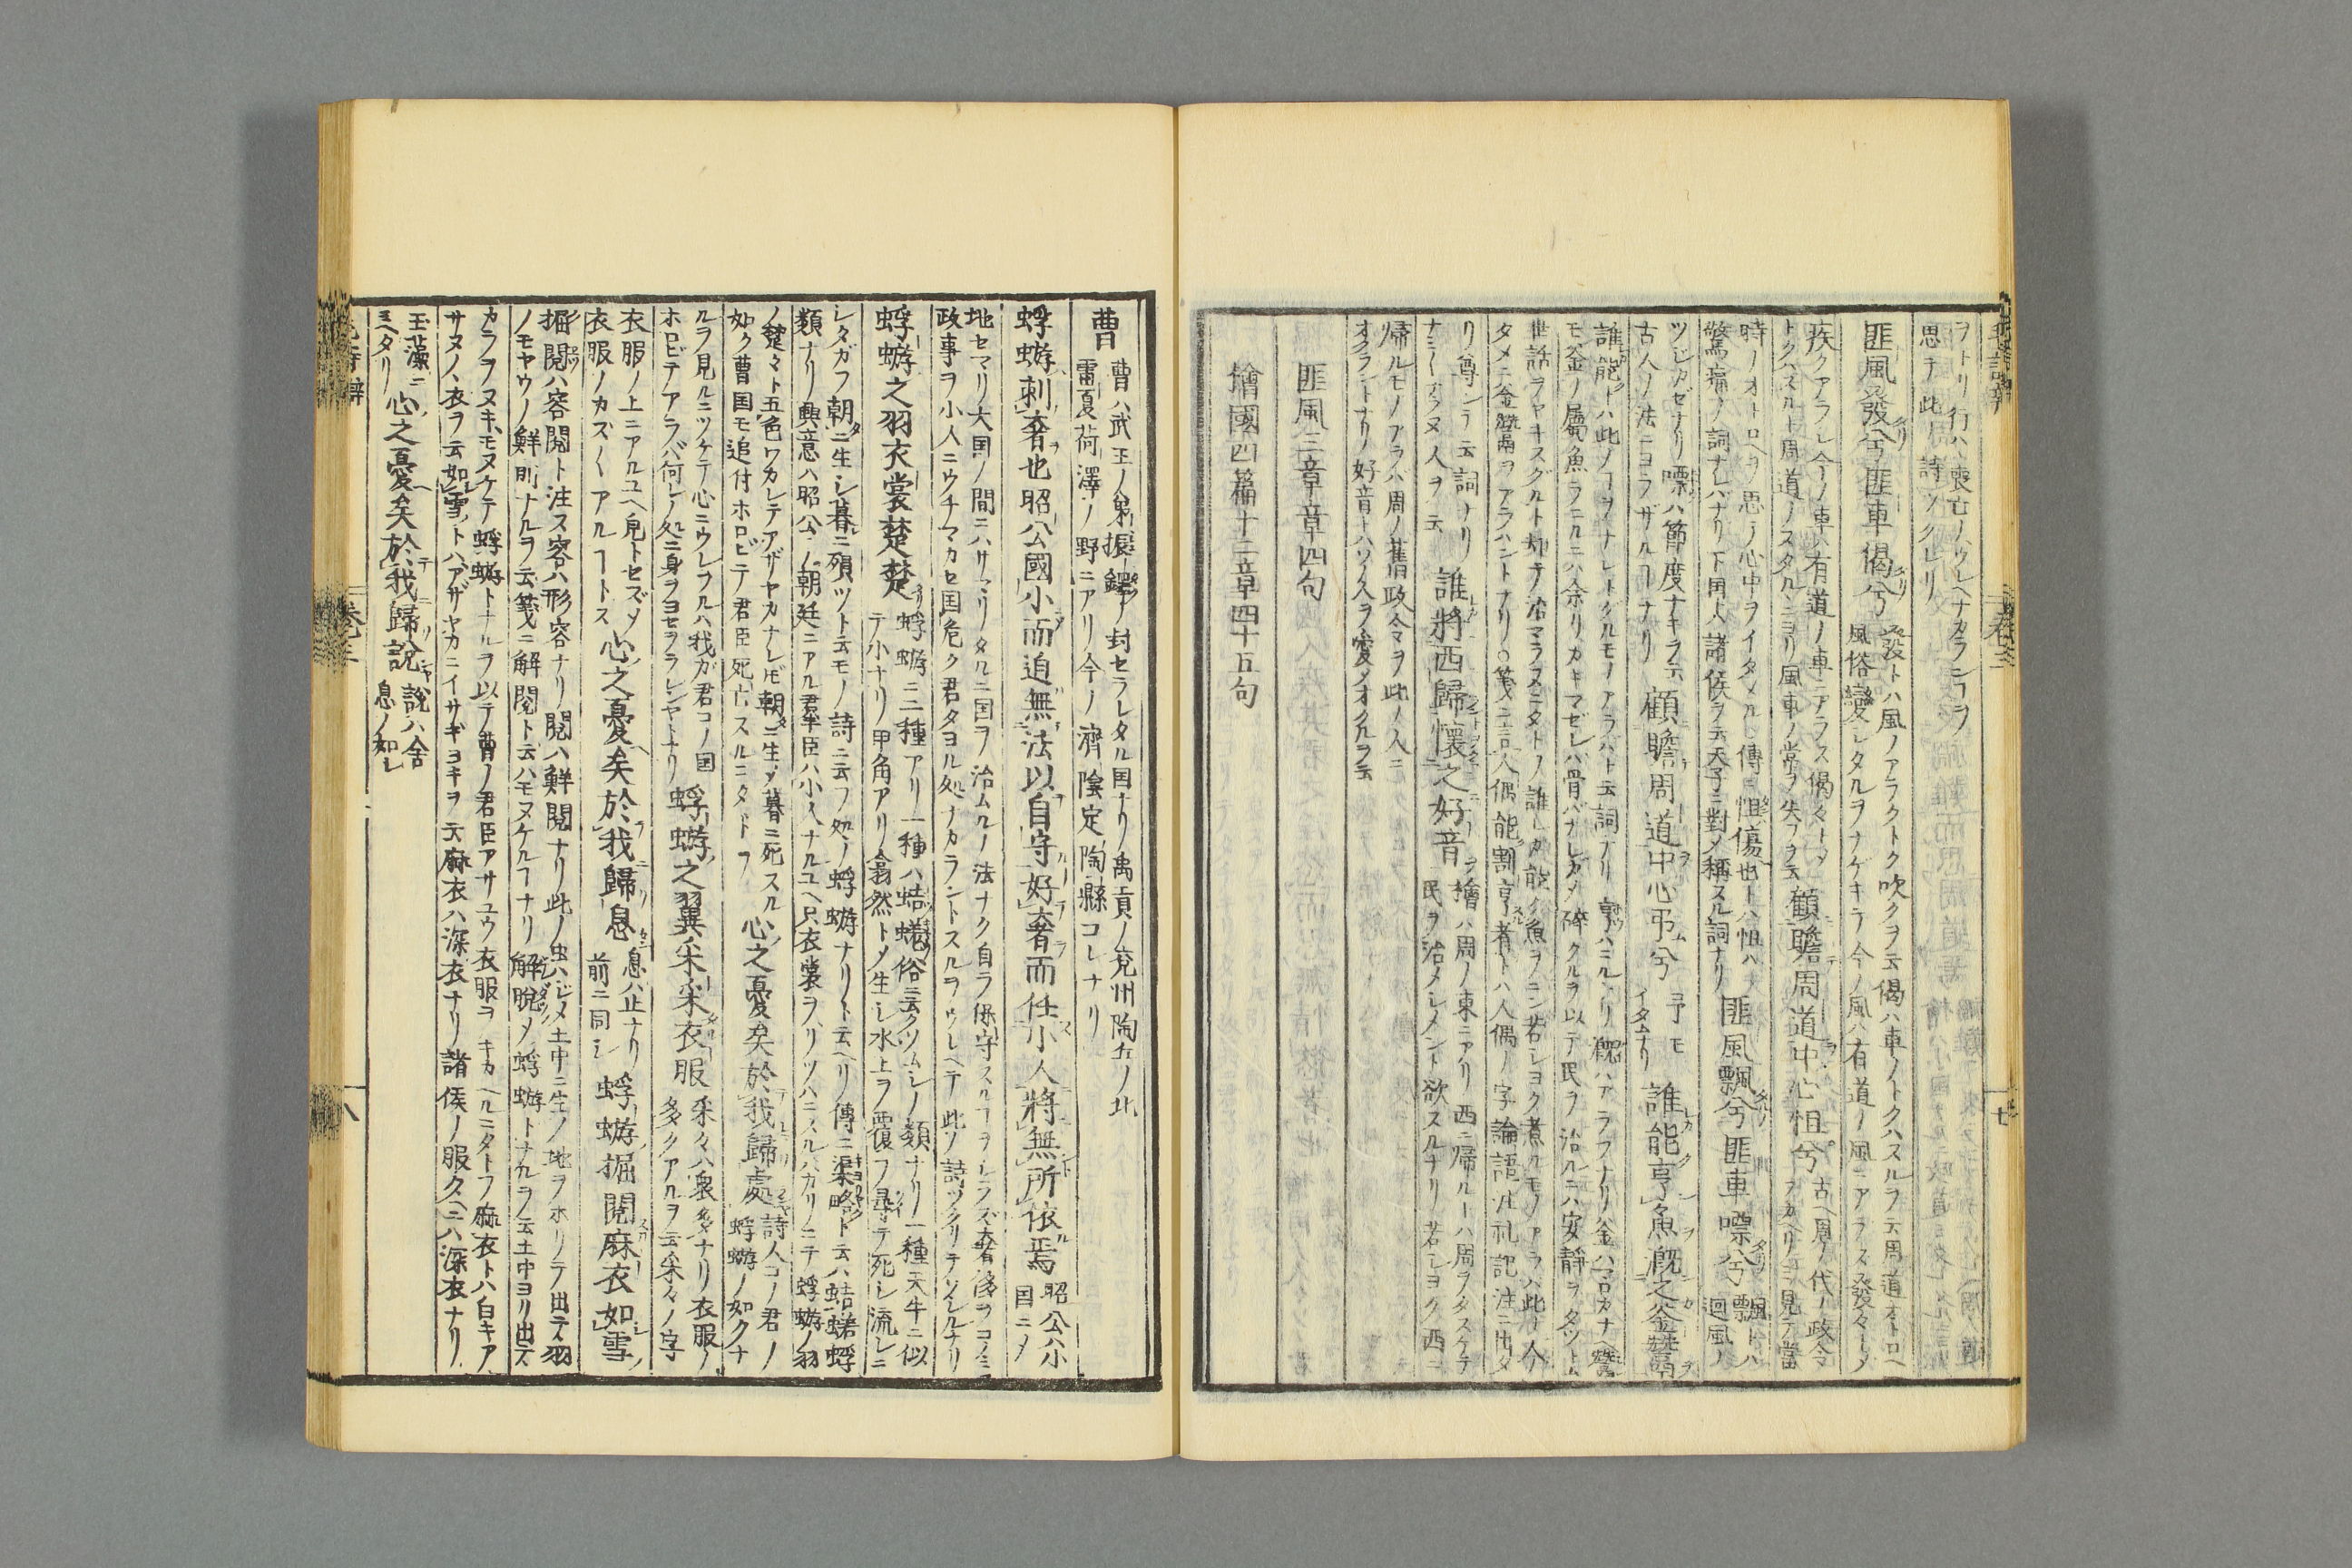 ヲトリ行ハヽ喪亡ノウレヘナカランヿヲ
思テ此ノ詩ツクレリ
匪風發兮匪車偈兮
發トハ風ノアラクトク吹クヲ云偈ハ車ノトクハスルヲ云周道オトロヘ
風俗變シタルヲナゲキテ今ノ風ハ有道ノ風ニアラス發々トシメ
疾クアラシ今ノ車ハ有道ノ車ニアラス偈々トメ
トクハスルト周道ノスタルニヨリ風車ノ常ヲ失フヲ云
顧瞻周道中心怛兮
古ヘ周ノ代ノ政令
見テ當
時ノオトロヘヲ思テ心中ヲイタメル傳ニ怛傷也トハ怛ハ
驚痛ノ詞ナレバナリ下国ハ諸侯ヲ云天子ニ對メ稱スル詞ナリ
匪風飄兮匪車嘌兮
飄トハ
迴風ノ
ツジカゼナリ嘌ハ節度ナキヲ云
古人ノ法ニヨラザルヿナリ
顧瞻周道中心弔兮
弔モ
イタムナリ
誰能亨魚漑之釜鬵
誰能トハ此ノヿヲナシトグルモノアラバト云詞ナリ亨ハニルナリ漑ハアラフナリ釜ハマロカナヘ鬵
モ釜ノ屬魚ヲニルニハ余リカキマゼレハ骨バナレガメ碎クルヲ以テ民ヲ治ルニハ安靜ヲタツトム
世話ヲヤキスグルト却テ治マラヌニタトヘ誰レカ能ク魚ヲニン若シヨク煮ルモノアラハ此ノ人
タメニ釜鬵ヲアラハントナリ○箋ニ言人偶能割亨者トハ人偶ノ字論語注礼記注ニ出タ
リ尊ンテ云詞ナリ
ナミ〱アラヌ人ヲ云
誰將西歸懷之好音
檜ハ周ノ東ニアリ西ニ帰ルトハ周ヲタスケテ
民ヲ治メシメント欲スルナリ若シヨク西ニ
帰ルモノアラハ周ノ舊政令ヲ此ノ人ニ
オクラントナリ好音トハソノ人ヲ愛メオクルヲ云
匪風三章章四句
檜國四篇十二章四十五句
曹
曹ハ武王ノ弟振鐸ノ封セラレタル国ナリ禹貢ノ兗州陶丘ノ北
雷夏荷澤ノ野ニアリ今ノ濟陰定陶縣コレナリ
蜉蝣刺奢也昭公國小而迫無法以自守好奢而任小人將無所依焉
昭公小
国ニメ
地セマリ大国ノ間ニハサマリタルニ国ヲ治ムルノ法ナク自ラ保守スルヿヲシラズ奢侈ヲコノミ
政事ヲ小人ニウチマカセ国危ク君タヨル処ナカラントスルヲウレヘテ此ノ詩ツクリテソシルナリ
蜉蝣之羽衣裳楚楚
蜉蝣ニ二種アリ一種ハ蛣蜣俗ニ云クソムシノ類ナリ一種天牛ニ似
テ小ナリ甲角アリ翕然トメ生シ水上ヲ覆フ尋テ死シ流レニ
シタガフ朝ニ生シ暮ニ殞ツト云モノ詩ニ云フ処ノ蜉蝣ナリト云ヘリ傳ニ渠略ト云ハ蛣蜣蜉
類ナリ興意ハ昭公ノ朝廷ニアル羣臣ハ小人ナルユヘ只衣裳ヲリツハニスルハカリニテ蜉蝣ノ羽
ノ楚々ト五色ワカレテアザヤカナレド朝ニ生メ暮ニ死スル
如ク曹国モ追付ホロビテ君臣死亡スルニタトフ
心之憂矣於我歸處
詩人コノ君ノ
蜉蝣ノ如クナ
ルヲ見ルニツケテ心ニウレフルハ我ガ君コノ国
ホロビテアラバ何レノ処ニ身ヲヨセラレンヤトナリ
蜉蝣之翼采采衣服
采々ハ衆多ナリ衣服ノ
多クアルヲ云采々ノ字
衣服ノ上ニアルユヘ皃トセズメ
衣服ノカズ〱アルヿトス
心之憂矣於我歸息
息ハ止ナリ
前ニ同シ
蜉蝣掘閱麻衣如雪
掘閱ハ容閱ト注ス容ハ形容ナリ閱ハ鮮閱ナリ此ノ虫ハジメ土中ニ生ノ地ヲホリテ出テ羽
ノモヤウノ鮮明ナルヲ云箋ニ解閱ト云ハモヌケルヿナリ解脫メ蜉蝣トナルヲ云土中ヨリ出テ
カラヲヌキモヌケテ蜉蝣トナルヲ以テ曹ノ君臣アサユウ衣服ヲキカヘルニタトフ麻衣トハ白キア
サヌノヽ衣ヲ云如雪トハアザヤカニイサギヨキヲ云麻衣ハ深衣ナリ諸侯ノ服タヘニハ深衣ナリ
玉藻ニ
ミヘタリ
心之憂矣於我歸說
說ハ舍
息ノ如シ